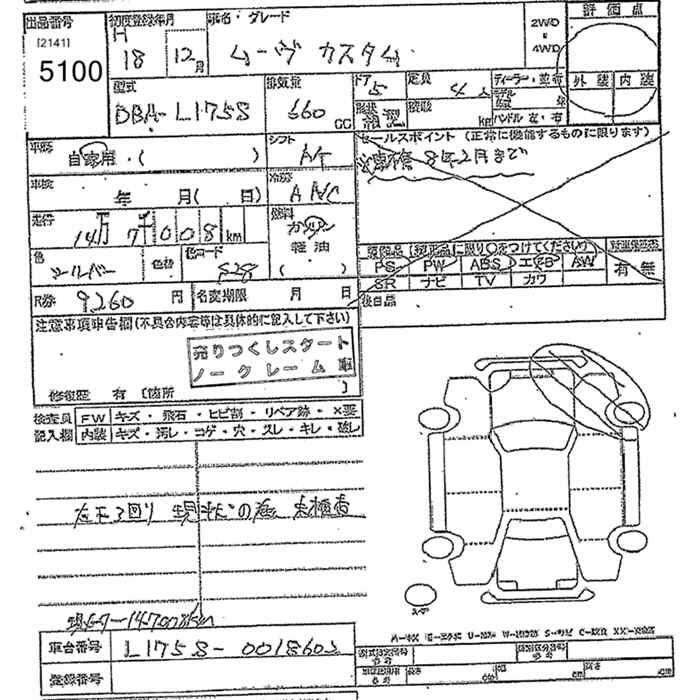 出品番号
[2141]
5100
初度登録年月
H
18 12月
車名・グレード
ムーヴ カスタム
2WD
4WD
評価点
外装 内装
型式
DBA-L175S
排気量
660 CC
ドア
5
形状
定員
4人
積載
kg
ディーラー・並行
モデル
年
ハンドル 左・右
車歴
自家用・( )
シフト
A/T
セールスポイント (正常に機能するものに限ります)
8年2月まで
車検
年 月( 日)
冷房
AAC
走行
14万7千008km
燃料
ガソリン
軽油
( )
色
シルバー
色替
色コード
S28
装備品 (純正品に限り○をつけて下さい)
PS PW ABS エアB AW
SR ナビ TV カワ
有 無
後日品
R券 9,260 円
名変期限 月 日
注意事項申告欄(不具合内容等は具体的に記入して下さい)
売りつくしスタート
ノークレーム車
修復歴 有 [箇所 ]
検査員
記入欄
FW キズ・飛石・ヒビ割・リペア跡・X要
内装 キズ・汚レ・コゲ・穴・スレ・キレ・破レ
車台番号 L175S-0018602
登録番号